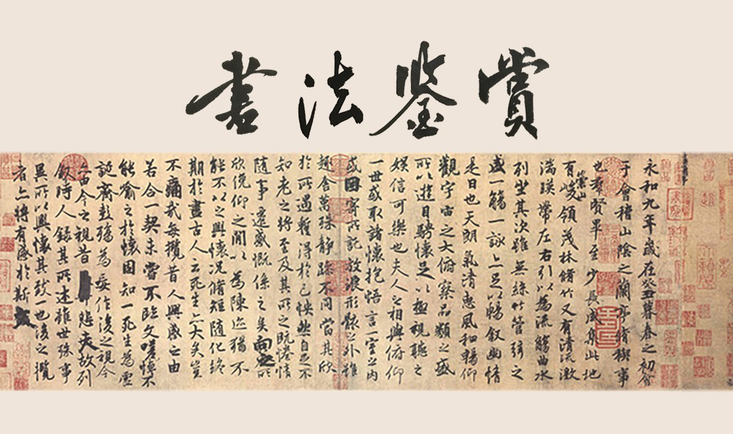 書法鑒賞
永和九年歲在癸丑暮春之初會
于會稽山陰之蘭亭脩禊事
也羣賢畢至少長咸集此地
有崇山峻領茂林脩竹又有清流激
湍暎帶左右引以為流觴曲水
列坐其次雖無絲竹管弦之
盛一觴一詠亦足以暢敘幽情
是日也天朗氣清惠風和暢仰
觀宇宙之大俯察品類之盛
所以遊目騁懷足以極視聽之
娛信可樂也夫人之相與俯仰
一世或取諸懷抱悟言一室之內
或因寄所託放浪形骸之外雖
趣舍萬殊靜躁不同當其欣
於所遇暫得於己怏然自足不
知老之將至及其所之既惓情
隨事遷感慨係之矣向之所
欣俛仰之閒以為陳跡猶不
能不以之興懷況脩短隨化終
期於盡古人云死生亦大矣豈
不痛哉每攬昔人興感之由
若合一契未嘗不臨文嗟悼不
能喻之於懷固知一死生為虛
誕齊彭殤為妄作後之視今
亦由今之視昔悲夫故列
敘時人錄其所述雖世殊事
異所以興懷其致一也後之攬
者亦將有感於斯文